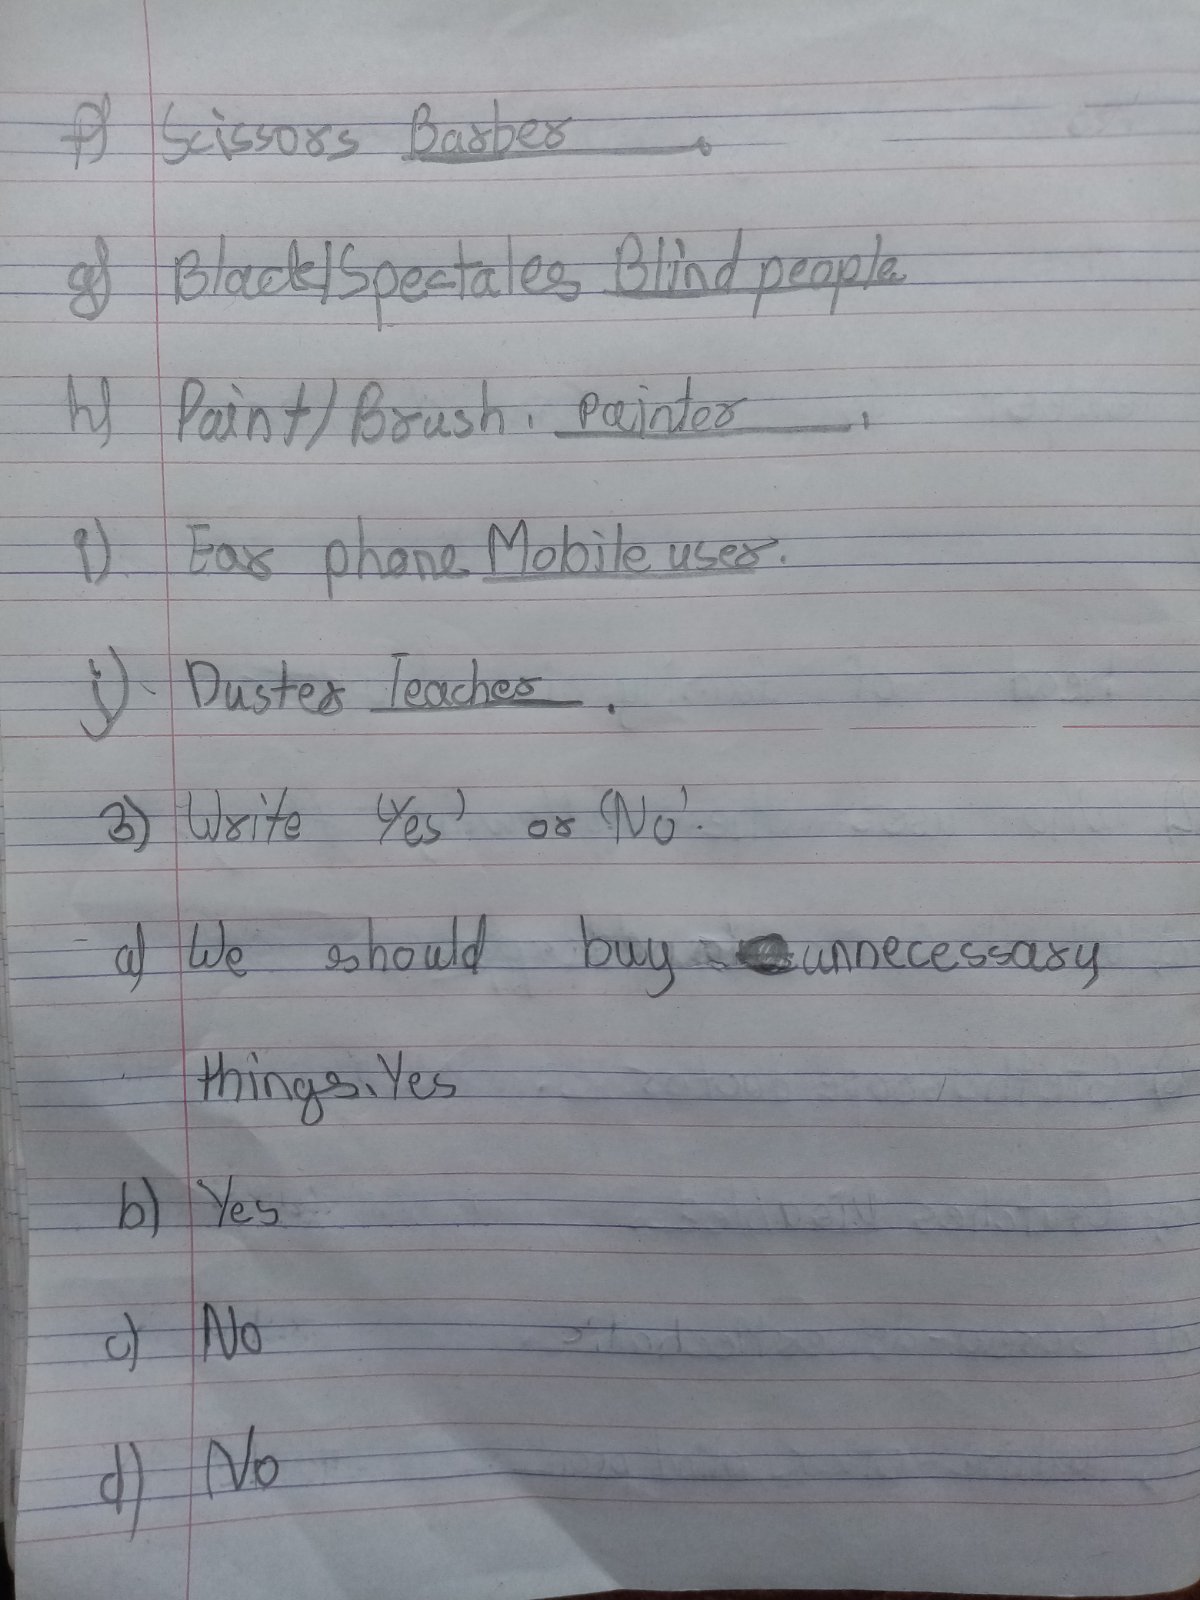 f) Scissors Barber.
g) Black/Spectales Blind people
h) Paint/Brush. painter.
i) Ear phone Mobile user.
j). Duster Teacher.
3) Write 'Yes' or 'No'.
a) We should buy unnecessary
things. Yes
b) Yes
c) No
d) No